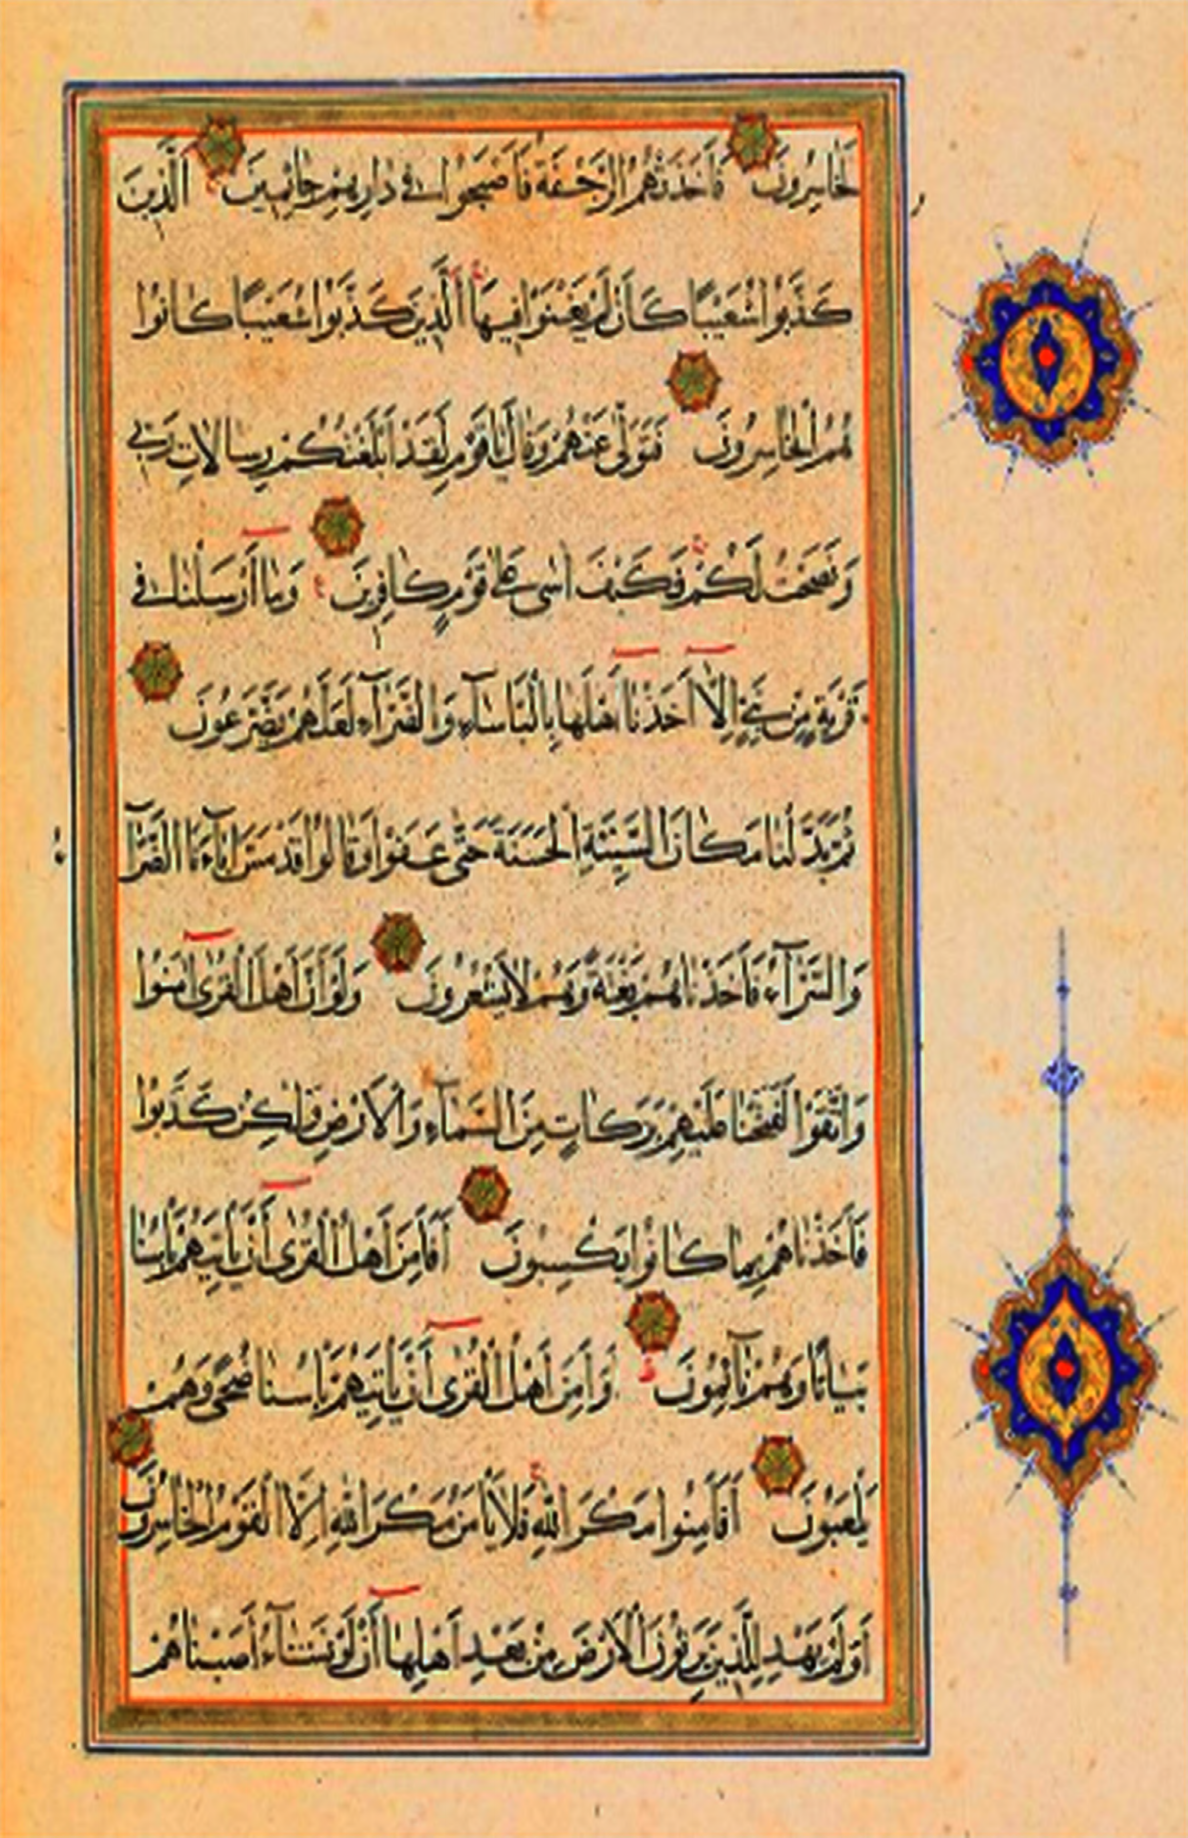 لَخَاسِرُونَ فَأَخَذَتْهُمُ الرَّجْفَةُ فَأَصْبَحُوا فِي دَارِهِمْ جَاثِمِينَ الَّذِينَ
كَذَّبُوا شُعَيْبًا كَأَنْ لَمْ يَغْنَوْا فِيهَا الَّذِينَ كَذَّبُوا شُعَيْبًا كَانُوا
هُمُ الْخَاسِرُونَ فَتَوَلَّى عَنْهُمْ وَقَالَ يَا قَوْمِ لَقَدْ أَبْلَغْتُكُمْ رِسَالَاتِ رَبِّي
وَنَصَحْتُ لَكُمْ فَكَيْفَ آسَى عَلَى قَوْمٍ كَافِرِينَ وَمَا أَرْسَلْنَا فِي
قَرْيَةٍ مِنْ نَبِيٍّ إِلَّا أَخَذْنَا أَهْلَهَا بِالْبَأْسَاءِ وَالضَّرَّاءِ لَعَلَّهُمْ يَضَّرَّعُونَ
ثُمَّ بَدَّلْنَا مَكَانَ السَّيِّئَةِ الْحَسَنَةَ حَتَّى عَفَوْا وَقَالُوا قَدْ مَسَّ آبَاءَنَا الضَّرَّآ
وَالسَّرَّآءُ فَأَخَذْنَاهُمْ بَغْتَةً وَهُمْ لَا يَشْعُرُونَ وَلَوْ أَنَّ أَهْلَ الْقُرَى آمَنُوا
وَاتَّقَوْا لَفَتَحْنَا عَلَيْهِمْ بَرَكَاتٍ مِنَ السَّمَآءِ وَالْأَرْضِ وَلَكِنْ كَذَّبُوا
فَأَخَذْنَاهُمْ بِمَا كَانُوا يَكْسِبُونَ أَفَأَمِنَ أَهْلُ الْقُرَى أَنْ يَأْتِيَهُمْ بَأْسُنَا
بَيَاتًا وَهُمْ نَآئِمُونَ أَوَأَمِنَ أَهْلُ الْقُرَى أَنْ يَأْتِيَهُمْ بَأْسُنَا ضُحًى وَهُمْ
يَلْعَبُونَ أَفَأَمِنُوا مَكْرَ اللَّهِ فَلَا يَأْمَنُ مَكْرَ اللَّهِ إِلَّا الْقَوْمُ الْخَاسِرُونَ
أَوَلَمْ يَهْدِ لِلَّذِينَ يَرِثُونَ الْأَرْضَ مِنْ بَعْدِ أَهْلِهَا أَنْ لَوْ نَشَآءُ أَصَبْنَاهُمْ